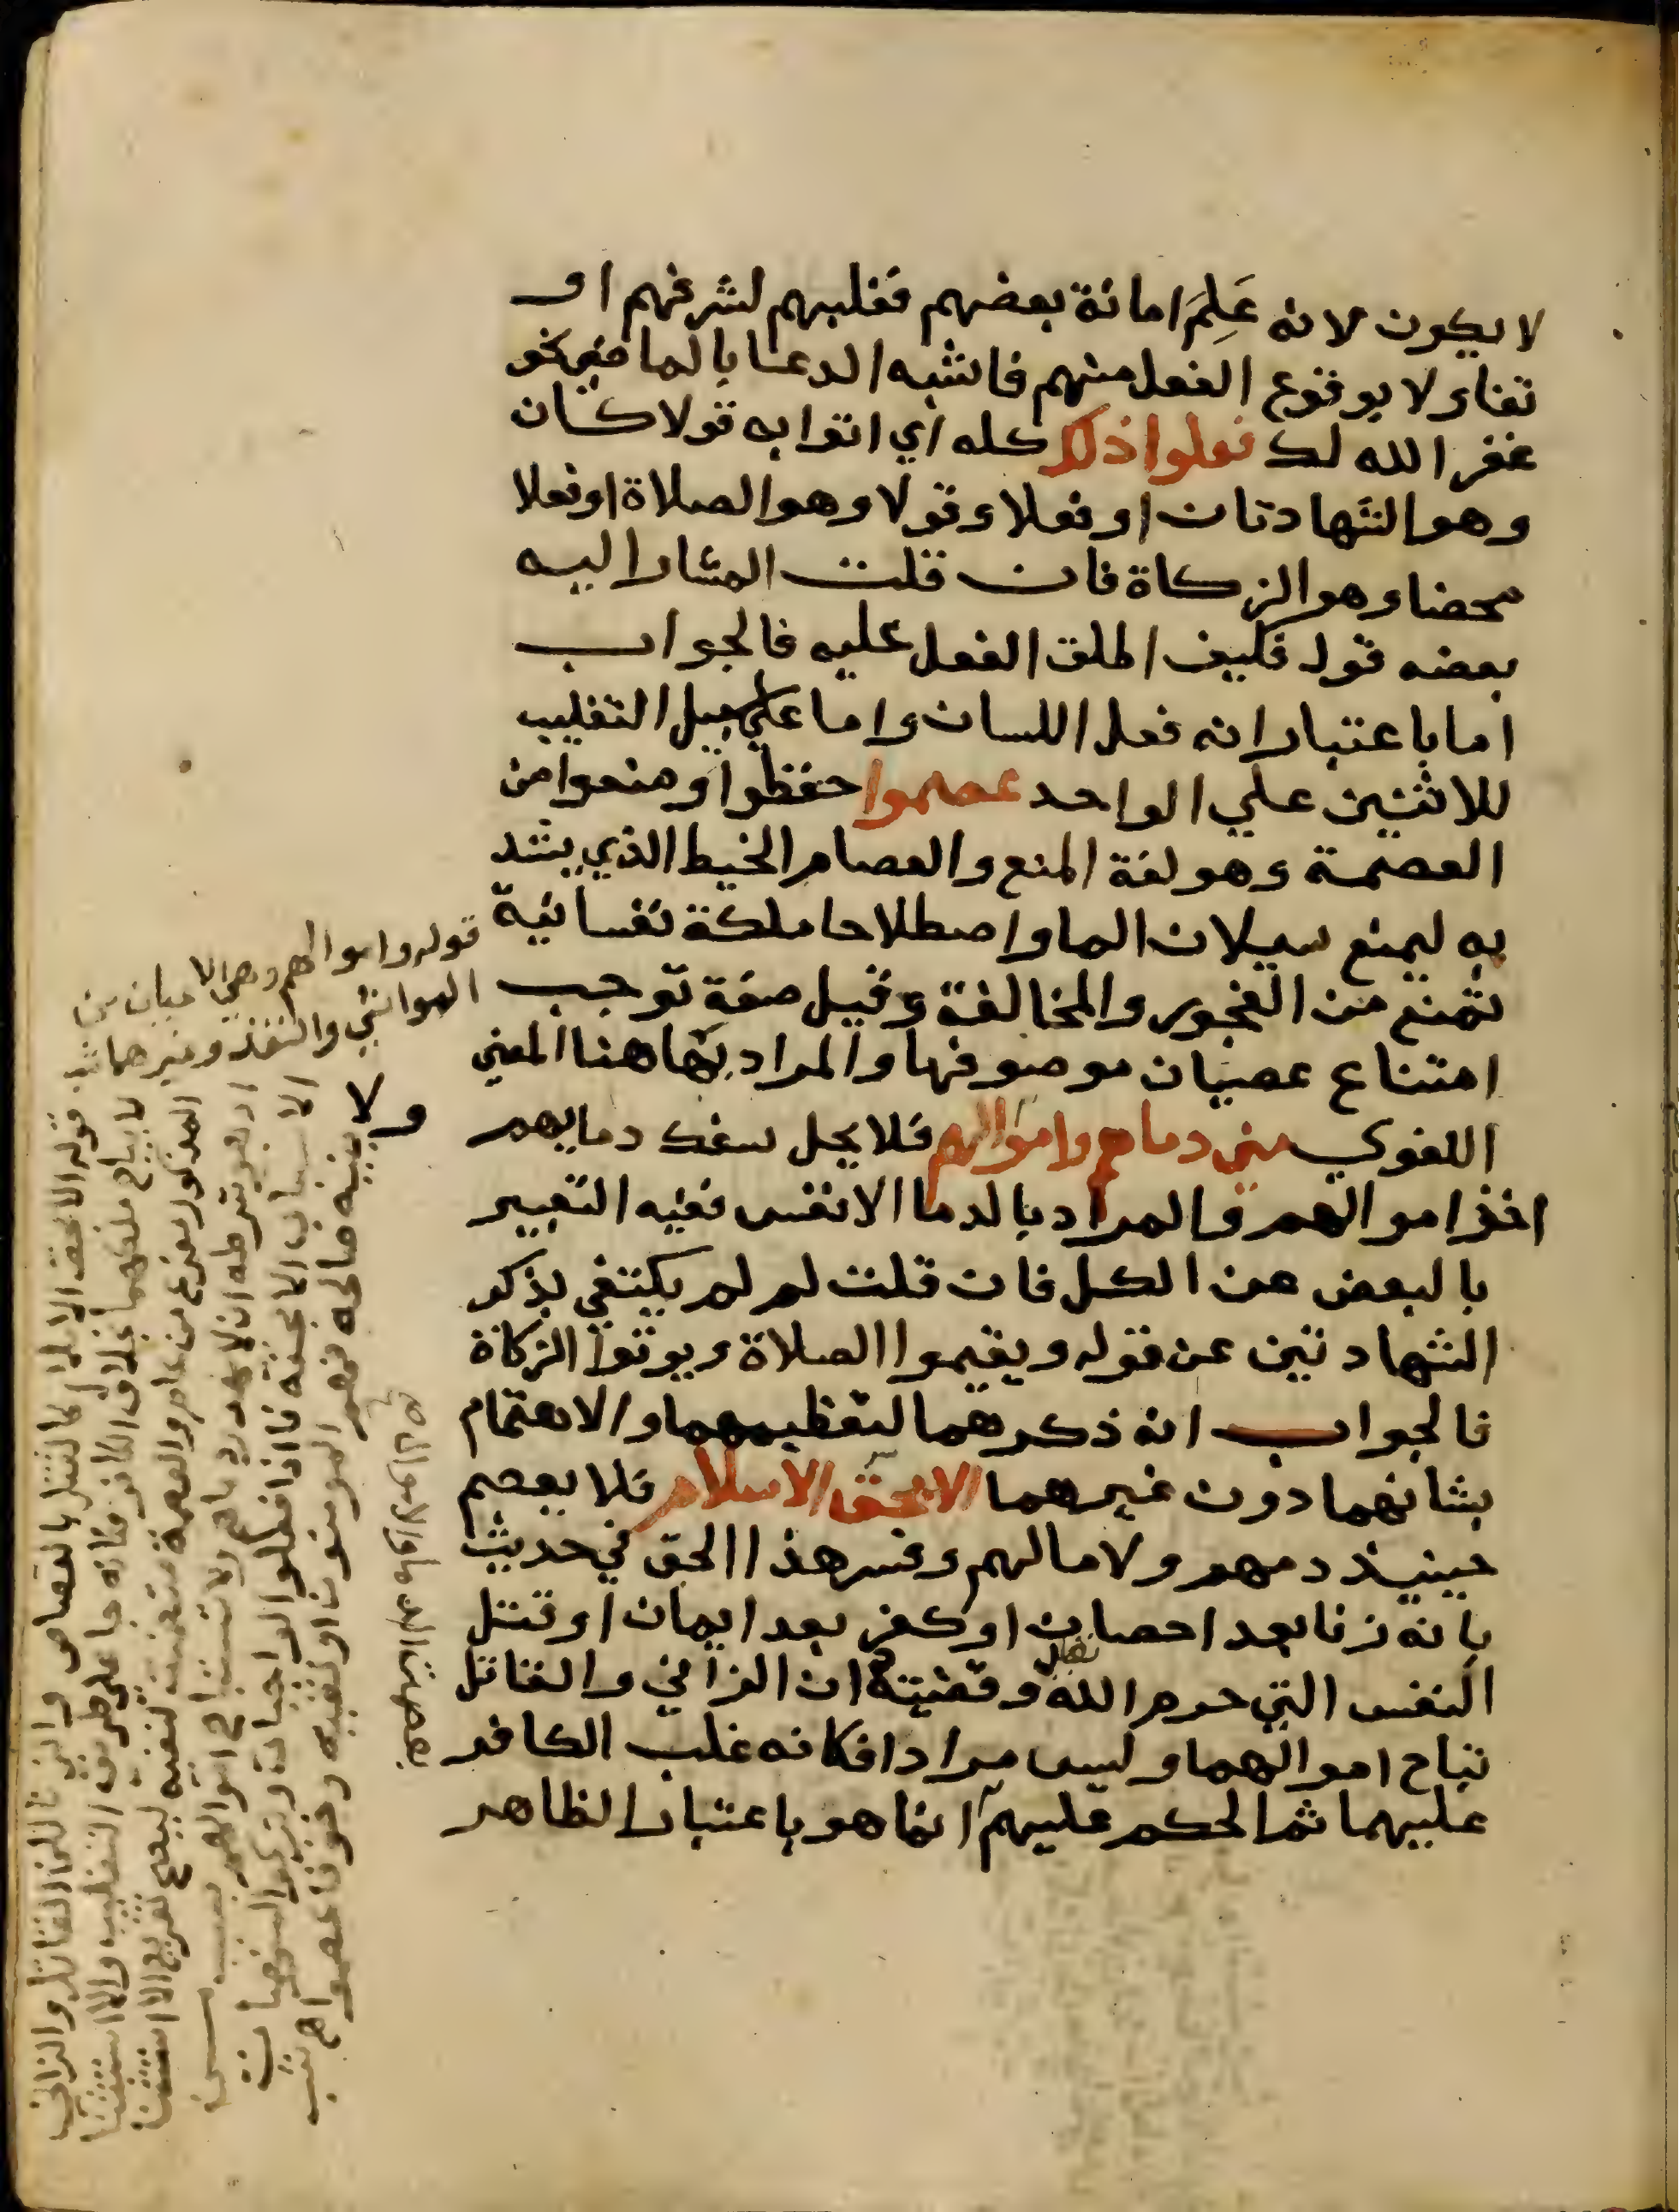 لا يكون لانه عَلِمَ امانة بعضهم فغلبهم لشرفهم او
تفاولا بوقوع الفعل منهم فاشبه الدعا بالماضي نحو
غفر الله لك فعلوا ذلك كله اي اتوا به قولا كان
وهو الشهادتان او فعلا وقولا وهو الصلاة او فعلا
محضا وهو الزكاة فان قلت المشار اليه
بعضه قول فكيف اطلق الفعل عليه فالجواب
اما باعتبار انه فعل اللسان واما على سبيل التغليب
للاثنين علي الواحد عصموا حفظوا ومنعوا من
العصمة وهو لغة المنع والعصام الخيط الذي يشد
به ليمنع سيلان الما واصطلاحا ملكة نفسانية
تمنع من الفجور والمخالفة وقيل صفة توجب
امتناع عصيان موصوفها والمراد بها هنا المعني
اللغوي مني دماهم واموالهم فلا يحل سفك دمايهم ولا
اخذ اموالهم والمراد بالدما الانفس ففيه التعبير
بالبعض عن الكل فان قلت لم لم يكتفي بذكر
الشهادتين عن قوله ويقيموا الصلاة ويوتوا الزكاة
فالجواب انه ذكرهما لتعظيمهما والاهتمام
بشانهما دون غيرهما الا بحق الاسلام فلا يعصم
حينيذ دمهم ولا مالهم وفسر هذا الحق في حديث
بانه زنا بعد احصان او كفر بعد ايمان او قتل
النفس التي حرم الله تعالى وقضيته ان الزاني والقاتل
تباح اموالهما وليس مرادا فكانه غلب الكافر
عليهما ثم الحكم عليهم انما هو باعتبار الظاهر
قوله واموالهم وهي الاعيان من
المواشي والنقد وغيرهما
قوله الا بحق الا كالقتل بالقصاص والزنا القاتل والزاني
لا يباح ملكهما بخلاف الكافر فكانه جا على طريق التغليب والاستثنا
المذكور مفرغ من عام والعصمة متضمنة لنفيه ليصح تفريع الاستثنا